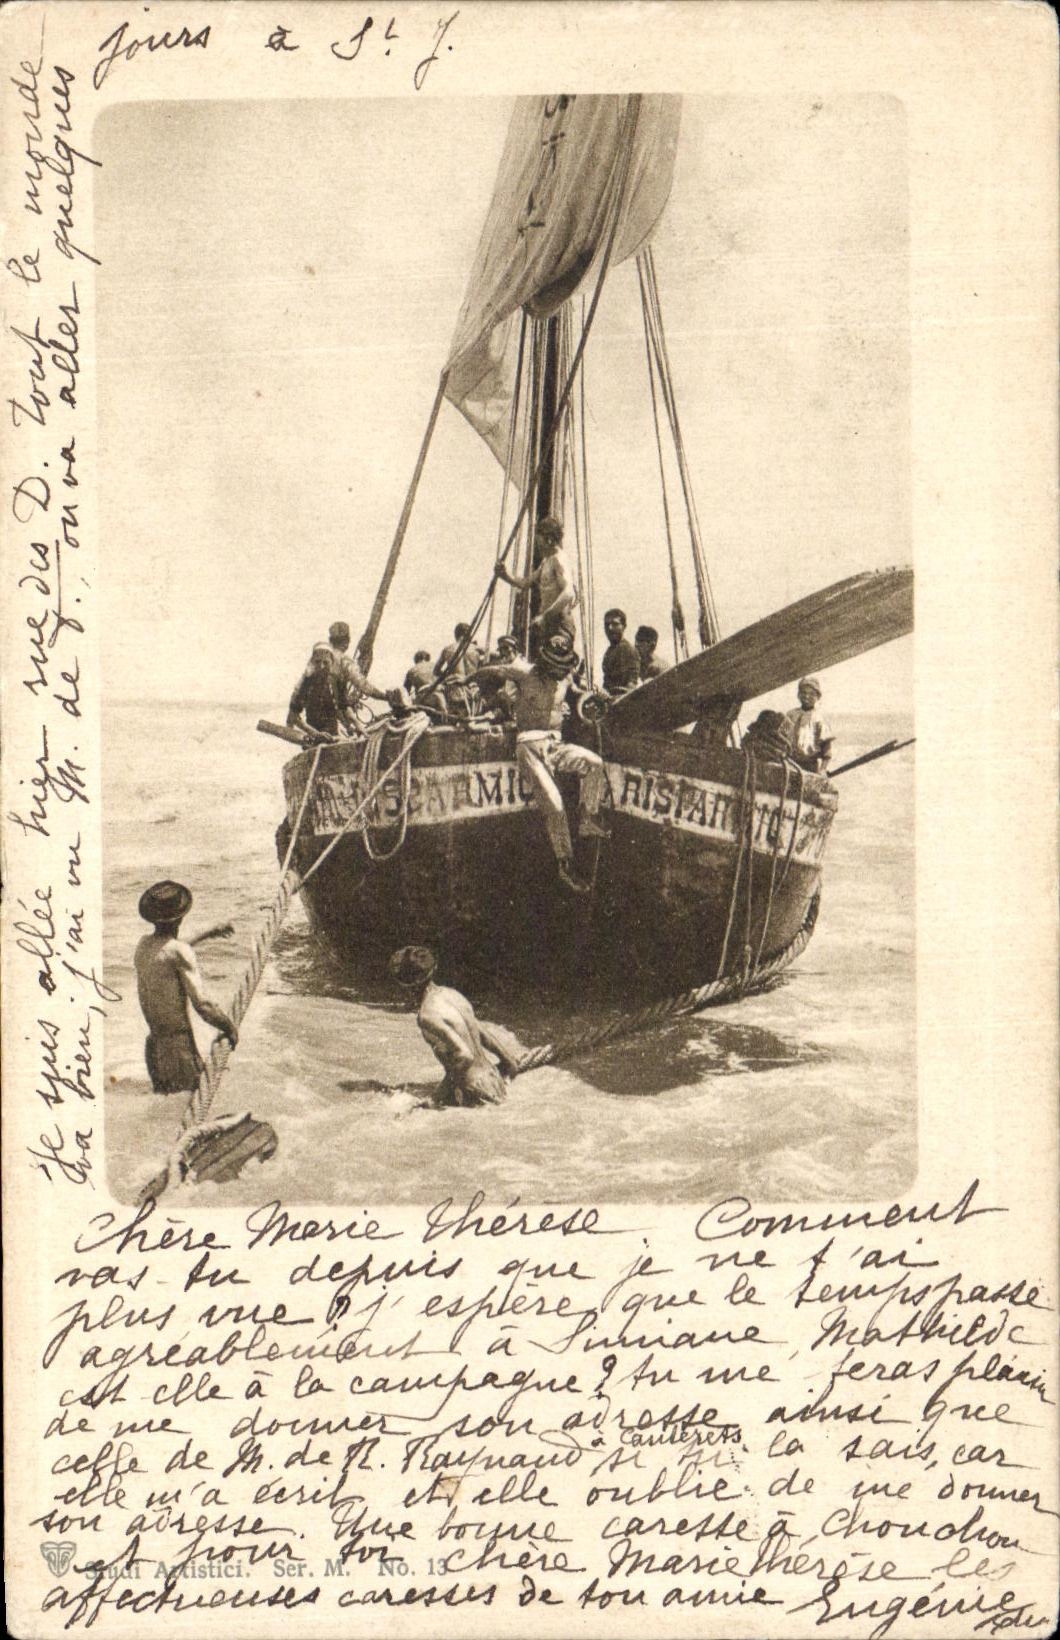 Chère Marie Thérèse. Comment
vas-tu depuis que je ne t'ai
plus vue? j'espère que le temps passe
agréablement à Simiane, Mathilde
est elle à la campagne? tu me feras plaisir
de me donner son adresse ainsi que
celle de M. de R. Raynaud à Cauterets si tu la sais, car
elle m'a écrit et elle oublie de me donner
son adresse. Une bonne caresse à Chouchou
et pour toi chère Marie Thérèse les
affectueuses caresses de ton amie Eugénie
Je suis allée hier rue des D. tout le monde
va bien, j'ai vu M. de J., on va aller quelques
jours à St J.
ARISTARMIO
Studi Artistici. Ser. M. No. 13